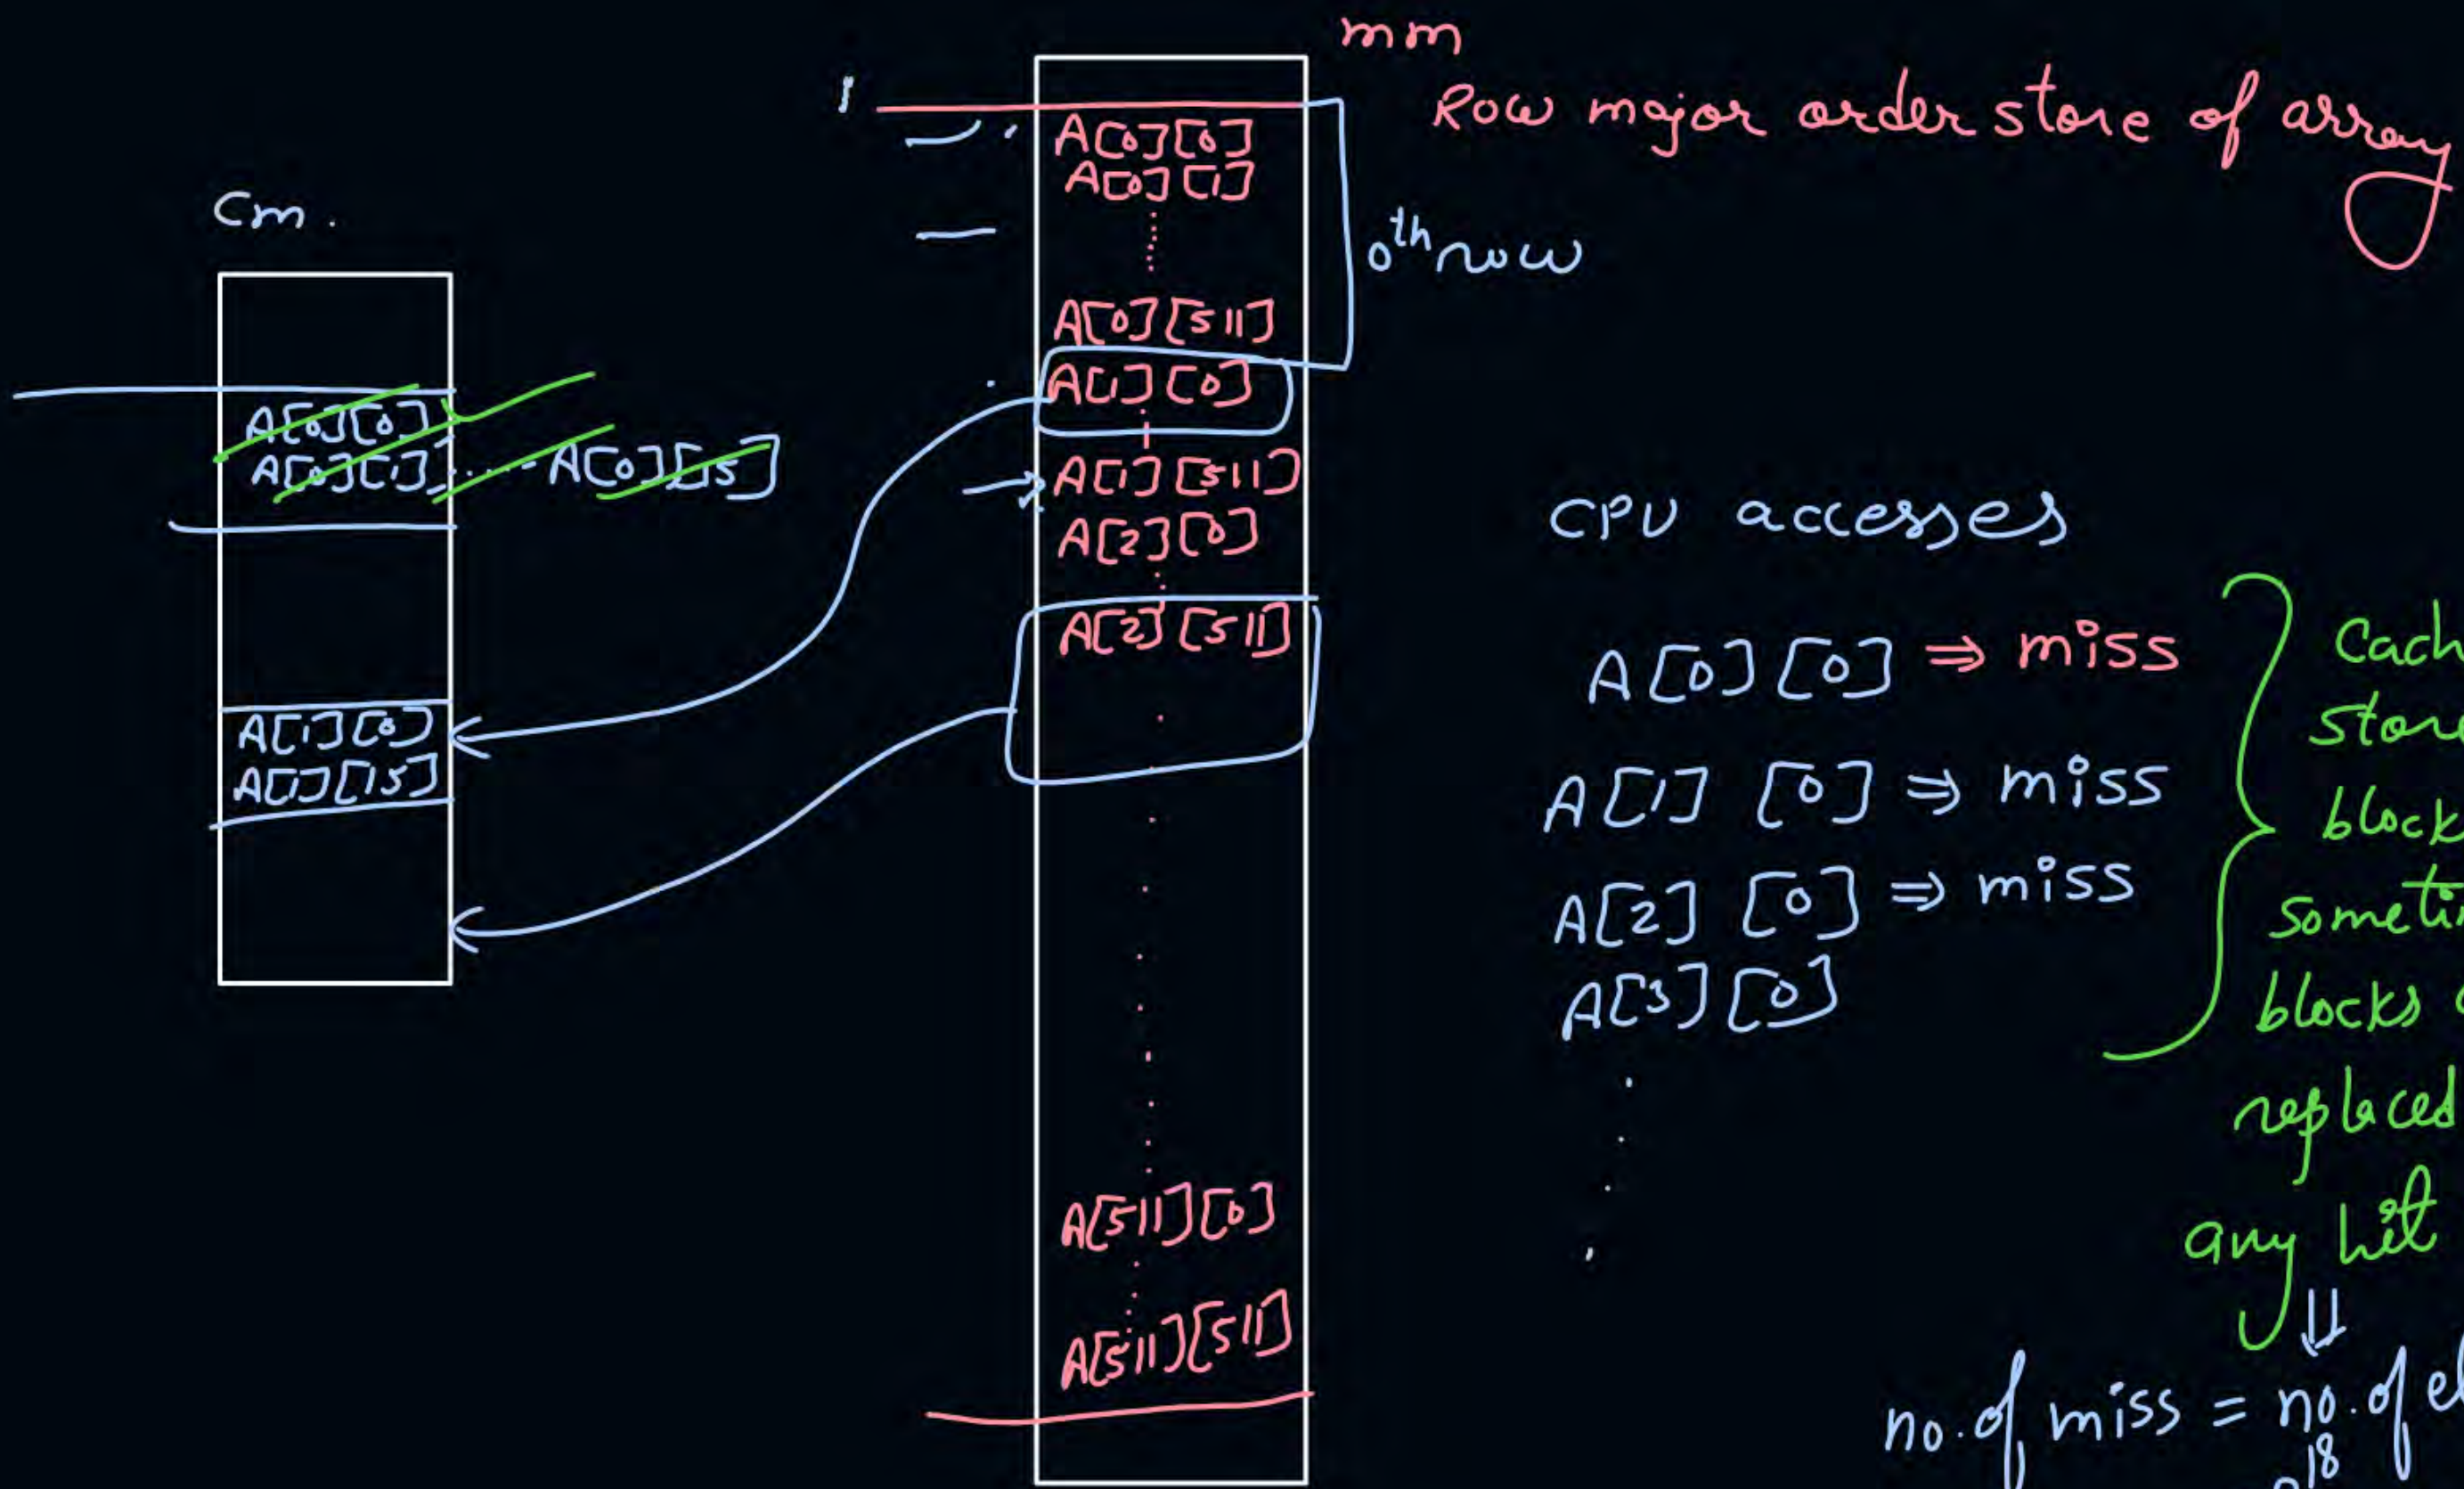 mm
Row major order store of array
A[0][0]
A[0][1]
0th row
A[0][511]
A[1][0]
A[1][511]
A[2][0]
A[2][511]
A[511][0]
A[511][511]
Cm.
A[0][0]
A[0][1] ...... A[0][15]
A[1][0]
A[1][15]
CPU accesses
A[0][0] ⇒ miss
A[1][0] ⇒ miss
A[2][0] ⇒ miss
A[3][0]
Cach
store
block
someti
blocks
replaced
any hit
⇓
no. of miss = no. of el
18